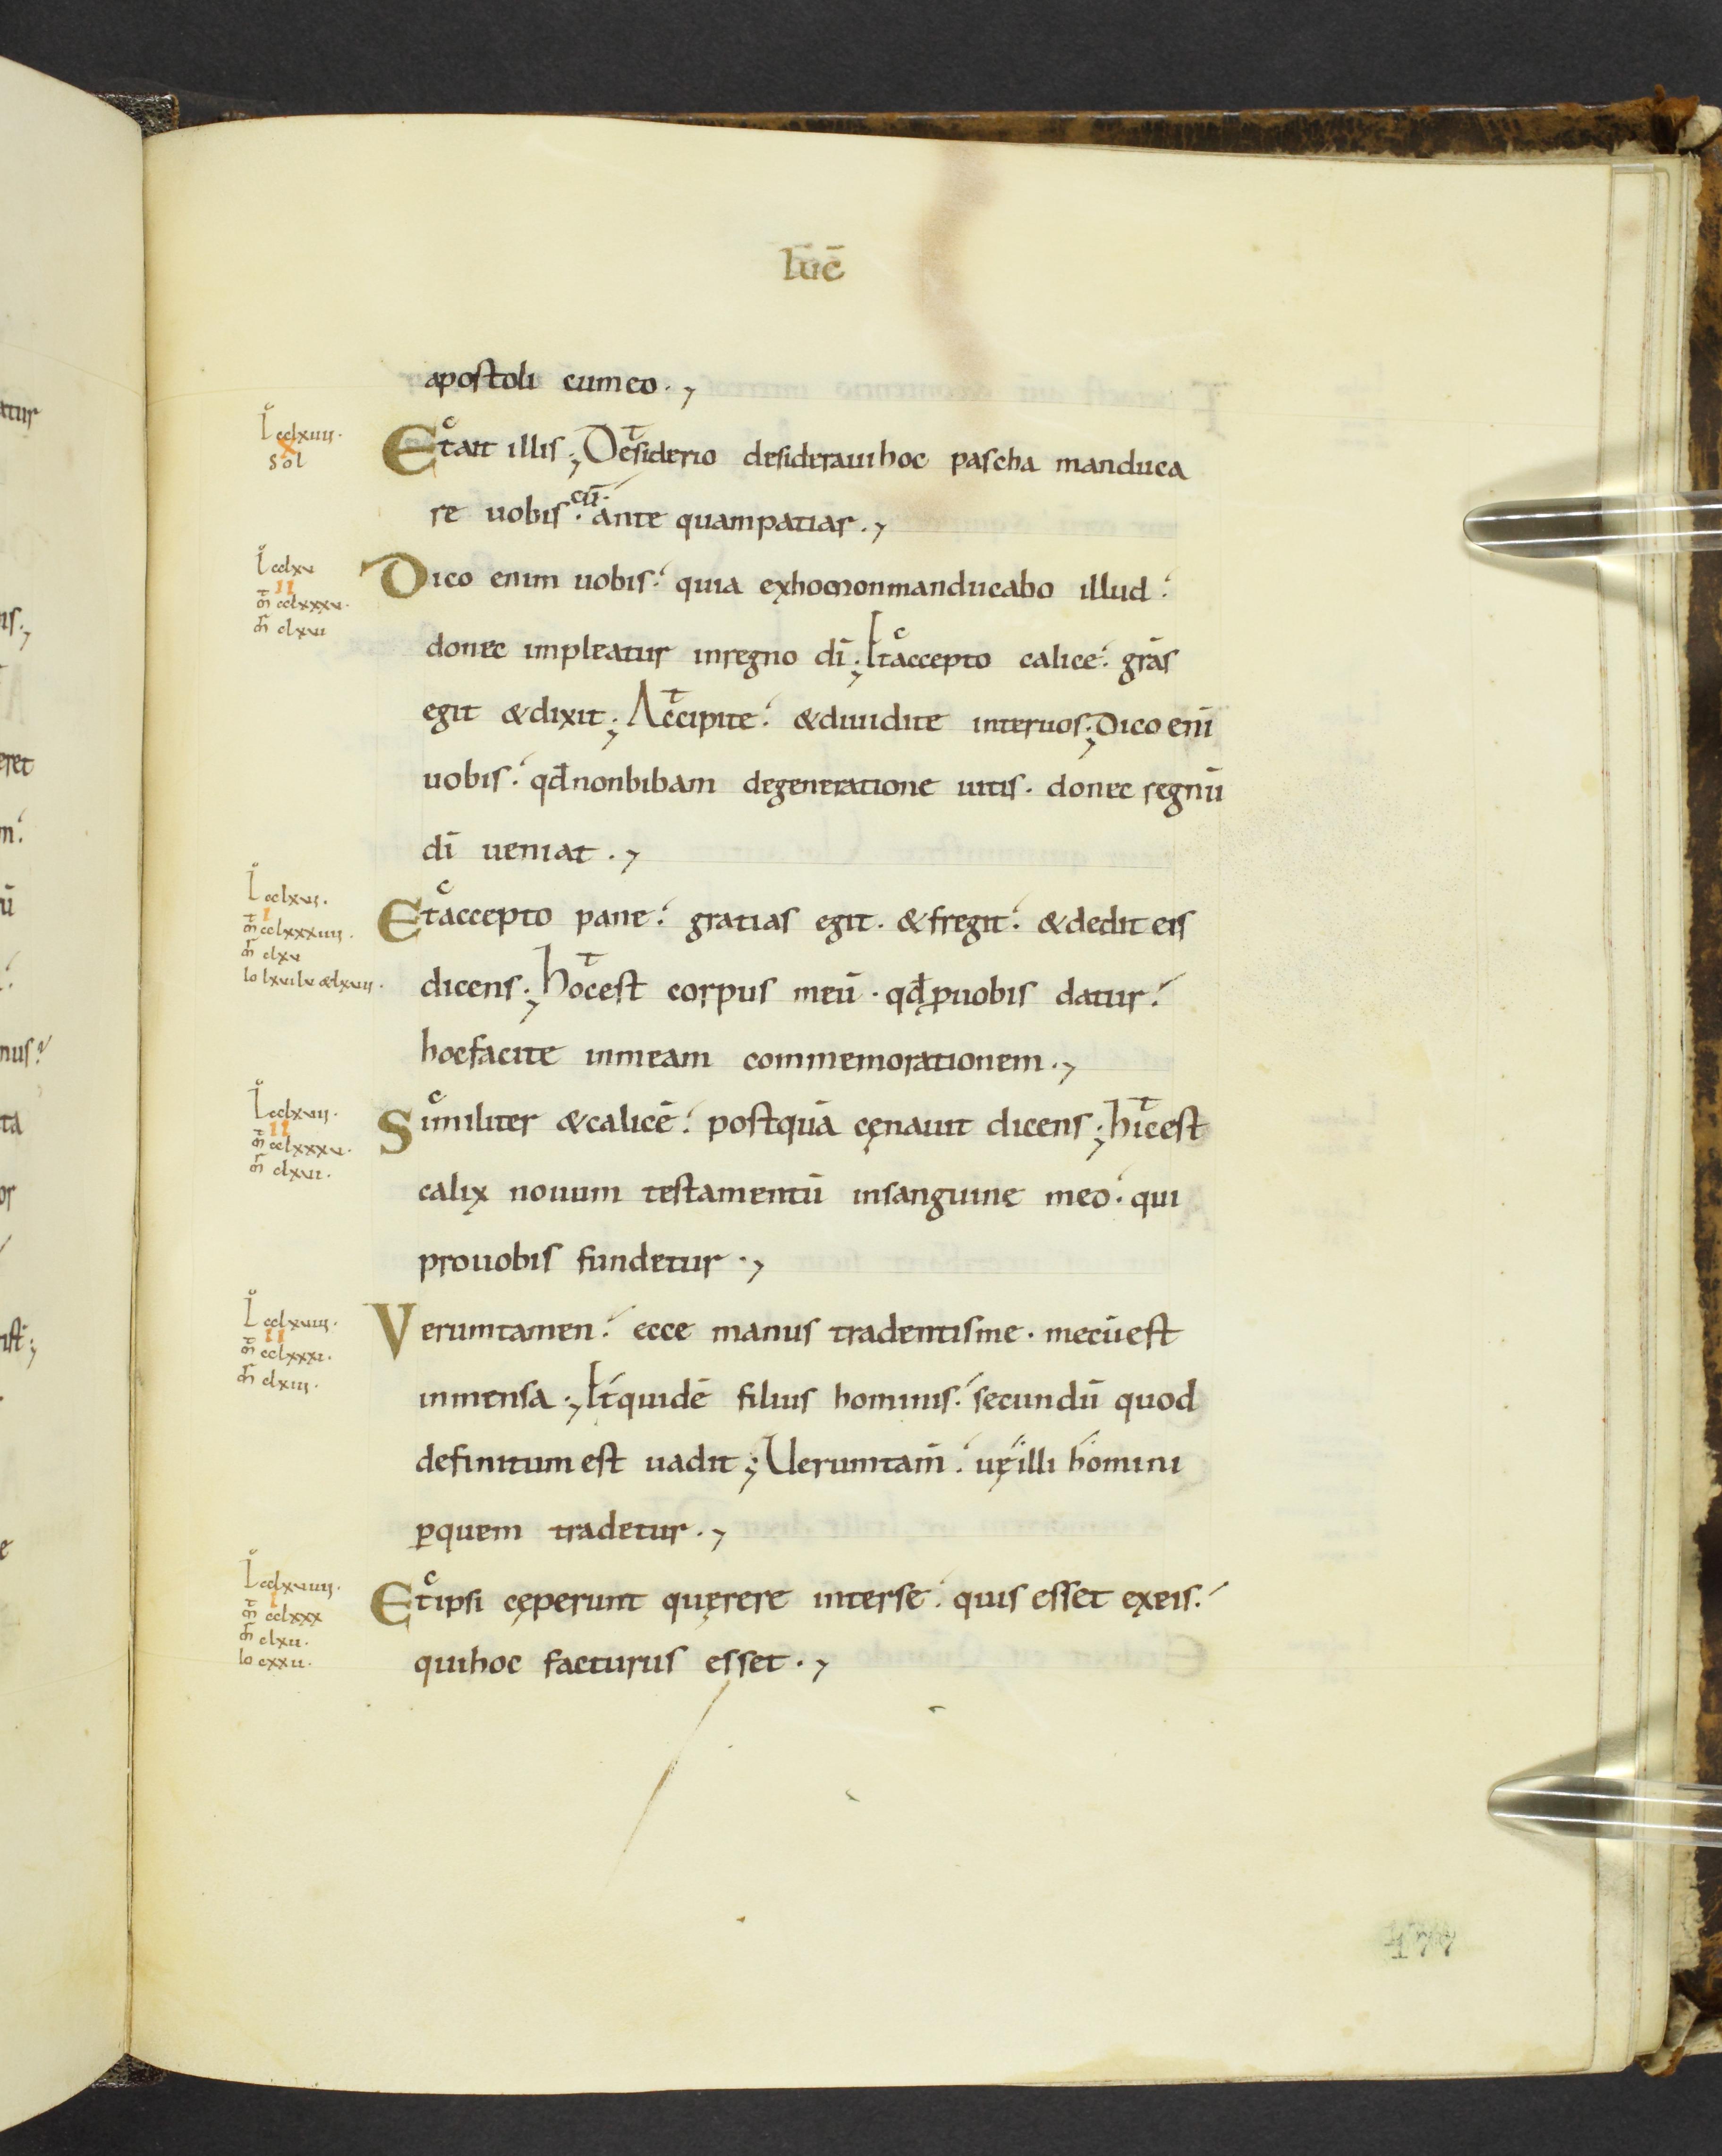 lūc̄
apostoli cumeo.,
L cclxiiii.
X
sol
Etait illis; Desiderio desiderauihoc pascha manduca
re uobiscū. ante quampatiar.,
L cclxv
II
m̄ cclxxxv.
m̄ clxvi
Dico enim uobis. quia exhocnonmanducabo illud.
donec impleatur inregno dī; Etaccepto calice. grās
egit &dixit; Accipite. &diuidite interuos; Dico enī
uobis. qđnonbibam degeneratione uitis. donec regnū
dī ueniat.,
L cclxvi.
I
m̄ cclxxxiiii.
m̄ clxv
Etaccepto pane. gratias egit. &fregit. &dedit eis
dicens; Hocest corpus meū. qđꝓuobis datur.
hocfacite inmeam commemorationem.,
L cclxvii.
II
m̄ cclxxxv.
m̄ clxvi.
Similiter &calicē. postquā cęnauit dicens; hicest
calix nouum testamentū insanguine meo. qui
prouobis fundetur.,
L cclxviii.
II
m̄ cclxxxi.
m̄ clxiii.
Verumtamen. ecce manus tradentisme. mecūest
inmensa; Etquidē filius hominis. secundū quod
definitum est uadit; Uerumtam̄. uęilli homini
ꝑquem tradetur.,
L cclxviiii.
I
m̄ cclxxx
m̄ clxii.
Io cxxii.
Etipsi cęperunt quęrere interse. quis esset exeis.
quihoc facturus esset.,
177